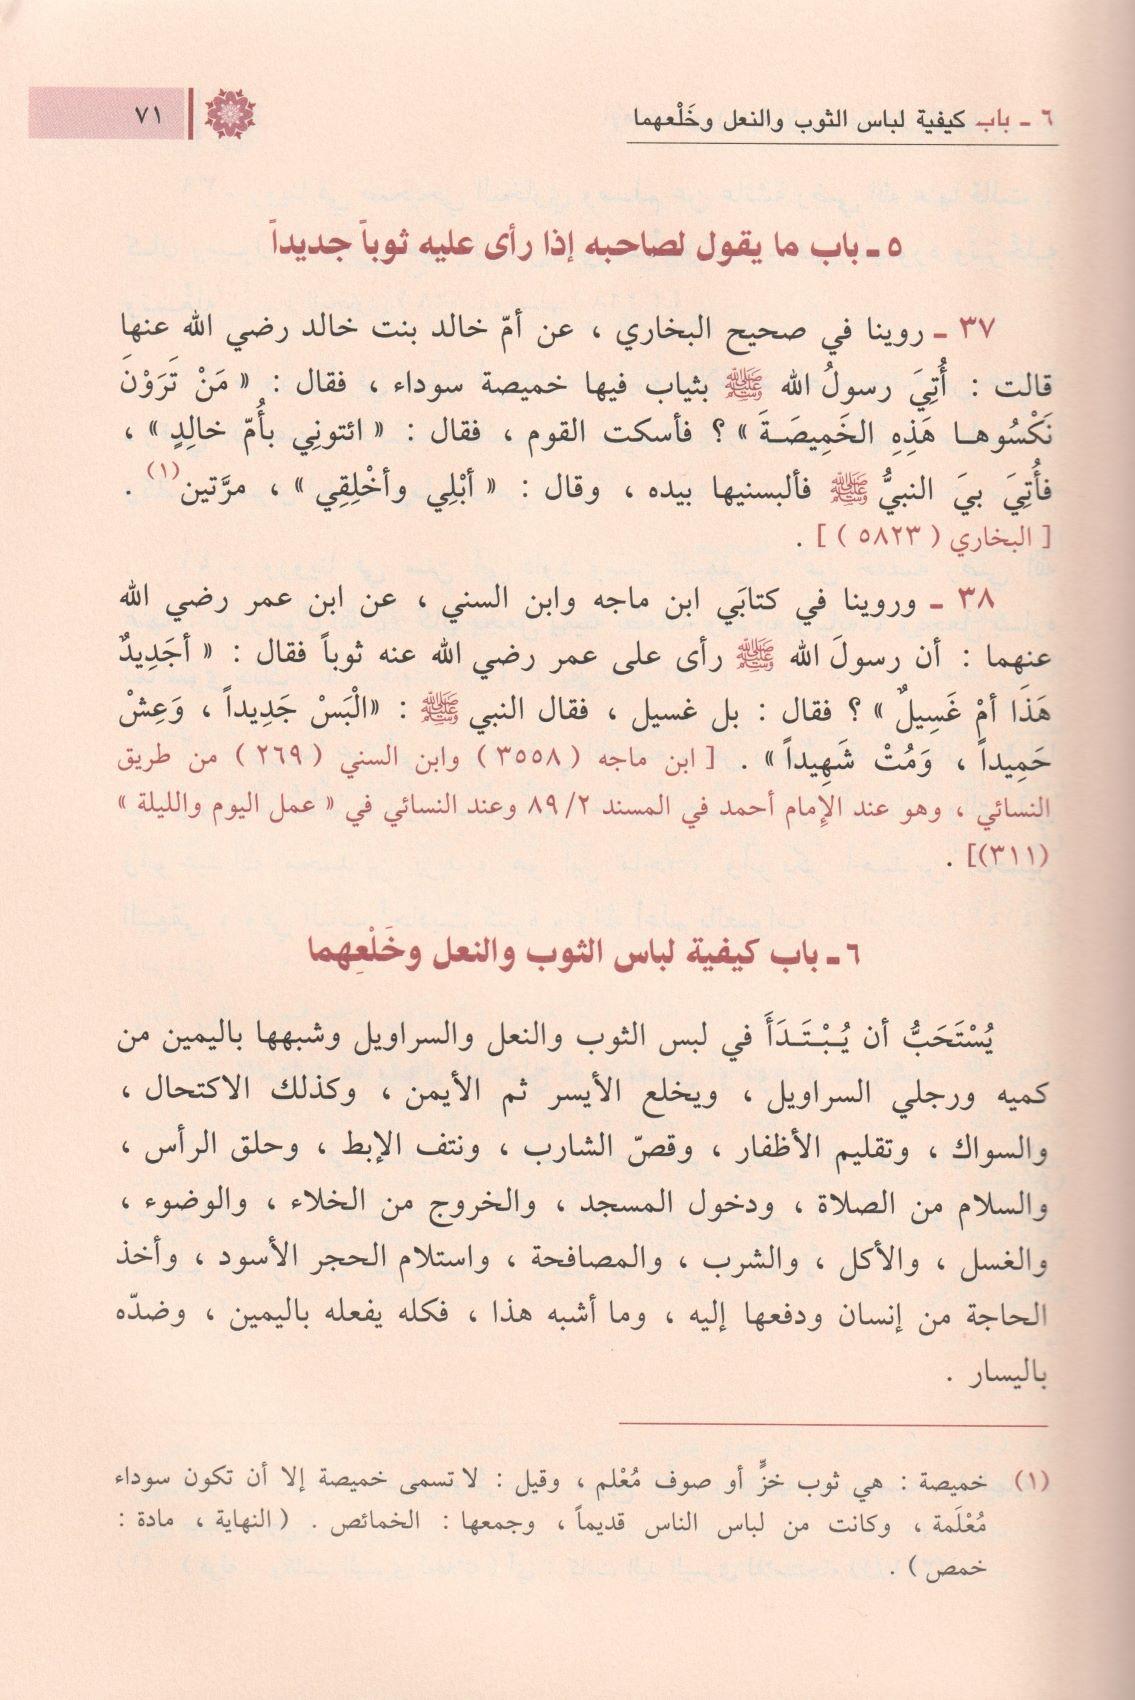 ٦ ـ باب كيفية لباس الثوب والنعل وخَلْعهما
٧١
٥ ـ باب ما يقول لصاحبه إذا رأى عليه ثوباً جديداً
٣٧ ـ روينا في صحيح البخاري ، عن أمّ خالد بنت خالد رضي الله عنها
قالت : أُتِيَ رسولُ الله ﷺ بثياب فيها خميصة سوداء ، فقال : « مَنْ تَرَوْنَ
نَكْسُوهـا هَذِهِ الخَمِيصَـةَ » ؟ فأسكت القوم ، فقال : « ائتونِي بأُمّ خالِدٍ » ،
فأُتِيَ بيَ النبيُّ ﷺ فألبسنيها بيده ، وقال : « أبْلِي وأخْلِقِي » ، مرَّتين(١) .
[ البخاري ( ٥٨٢٣ ) ] .
٣٨ ـ وروينا في كتابَي ابن ماجه وابن السني ، عن ابن عمر رضي الله
عنهما : أن رسولَ الله ﷺ رأى على عمر رضي الله عنه ثوباً فقال : « أجَدِيدٌ
هَذَا أمْ غَسِيلٌ » ؟ فقال : بل غسيل ، فقال النبي ﷺ : «الْبَسْ جَدِيداً ، وَعِشْ
حَمِيداً ، وَمُتْ شَهِيداً » . [ ابن ماجه ( ٣٥٥٨ ) وابن السني ( ٢٦٩ ) من طريق
النسائي ، وهو عند الإمام أحمد في المسند ٨٩/٢ وعند النسائي في « عمل اليوم والليلة »
(٣١١)] .
٦ ـ باب كيفية لباس الثوب والنعل وخَلْعِهما
يُسْتَحَبُّ أن يُـبْـتَـدَأَ في لبس الثوب والنعل والسراويل وشبهها باليمين من
كميه ورجلي السراويل ، ويخلع الأيسر ثم الأيمن ، وكذلك الاكتحال ،
والسواك ، وتقليم الأظفار ، وقصّ الشارب ، ونتف الإبط ، وحلق الرأس ،
والسلام من الصلاة ، ودخول المسجد ، والخروج من الخلاء ، والوضوء ،
والغسل ، والأكل ، والشرب ، والمصافحة ، واستلام الحجر الأسود ، وأخذ
الحاجة من إنسان ودفعها إليه ، وما أشبه هذا ، فكله يفعله باليمين ، وضدّه
باليسار .
(١) خميصة : هي ثوب خزٍّ أو صوف مُعْلم ، وقيل : لا تسمى خميصة إلا أن تكون سوداء
مُعْلَمة ، وكانت من لباس الناس قديماً ، وجمعها : الخمائص . ( النهاية ، مادة :
خمص ) .